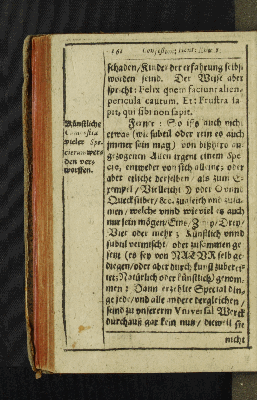 161
schaden/Kinder der erfahrung selbst
worden seind. Der Weise aber
spricht: Felix quem faciunt alien-
pericula cautum. Et: Frustra sa-
pit, qui sibi non sapit.
Künstliche
vieler Spe-
cierum wer-
den ver-
worffen.
Ferner: So ists auch nicht
etwas (wie subtil oder rein es auch
immer sein mag) von bißhero an-
gezogenen Allen irgent einem Spe-
cie, entweder von sich alleine; oder
aber etliche derselben / als zum E-
xempel / Vielleicht oder Ovund
Quecksilber / &c. zugleich vnd zusa-
men / welche vnnd wie viel es auch
nur sein mögen / Eins / Zwey / Drey /
Vier oder mehr; Künstlich vnnd
subtil vermischt / oder zusammen ge-
setzt (es sey von NATVR selb ge-
diegen / oder aber durch kunst zuberei-
tet; Natürlich oder künstlich) genom-
men: Dann erzehlte Special din-
ge jede / vnd alle andere dergleichen /
seind zu vnserem Vniversal Werck
durchaus gar kein nutz / dieweil sie
nicht